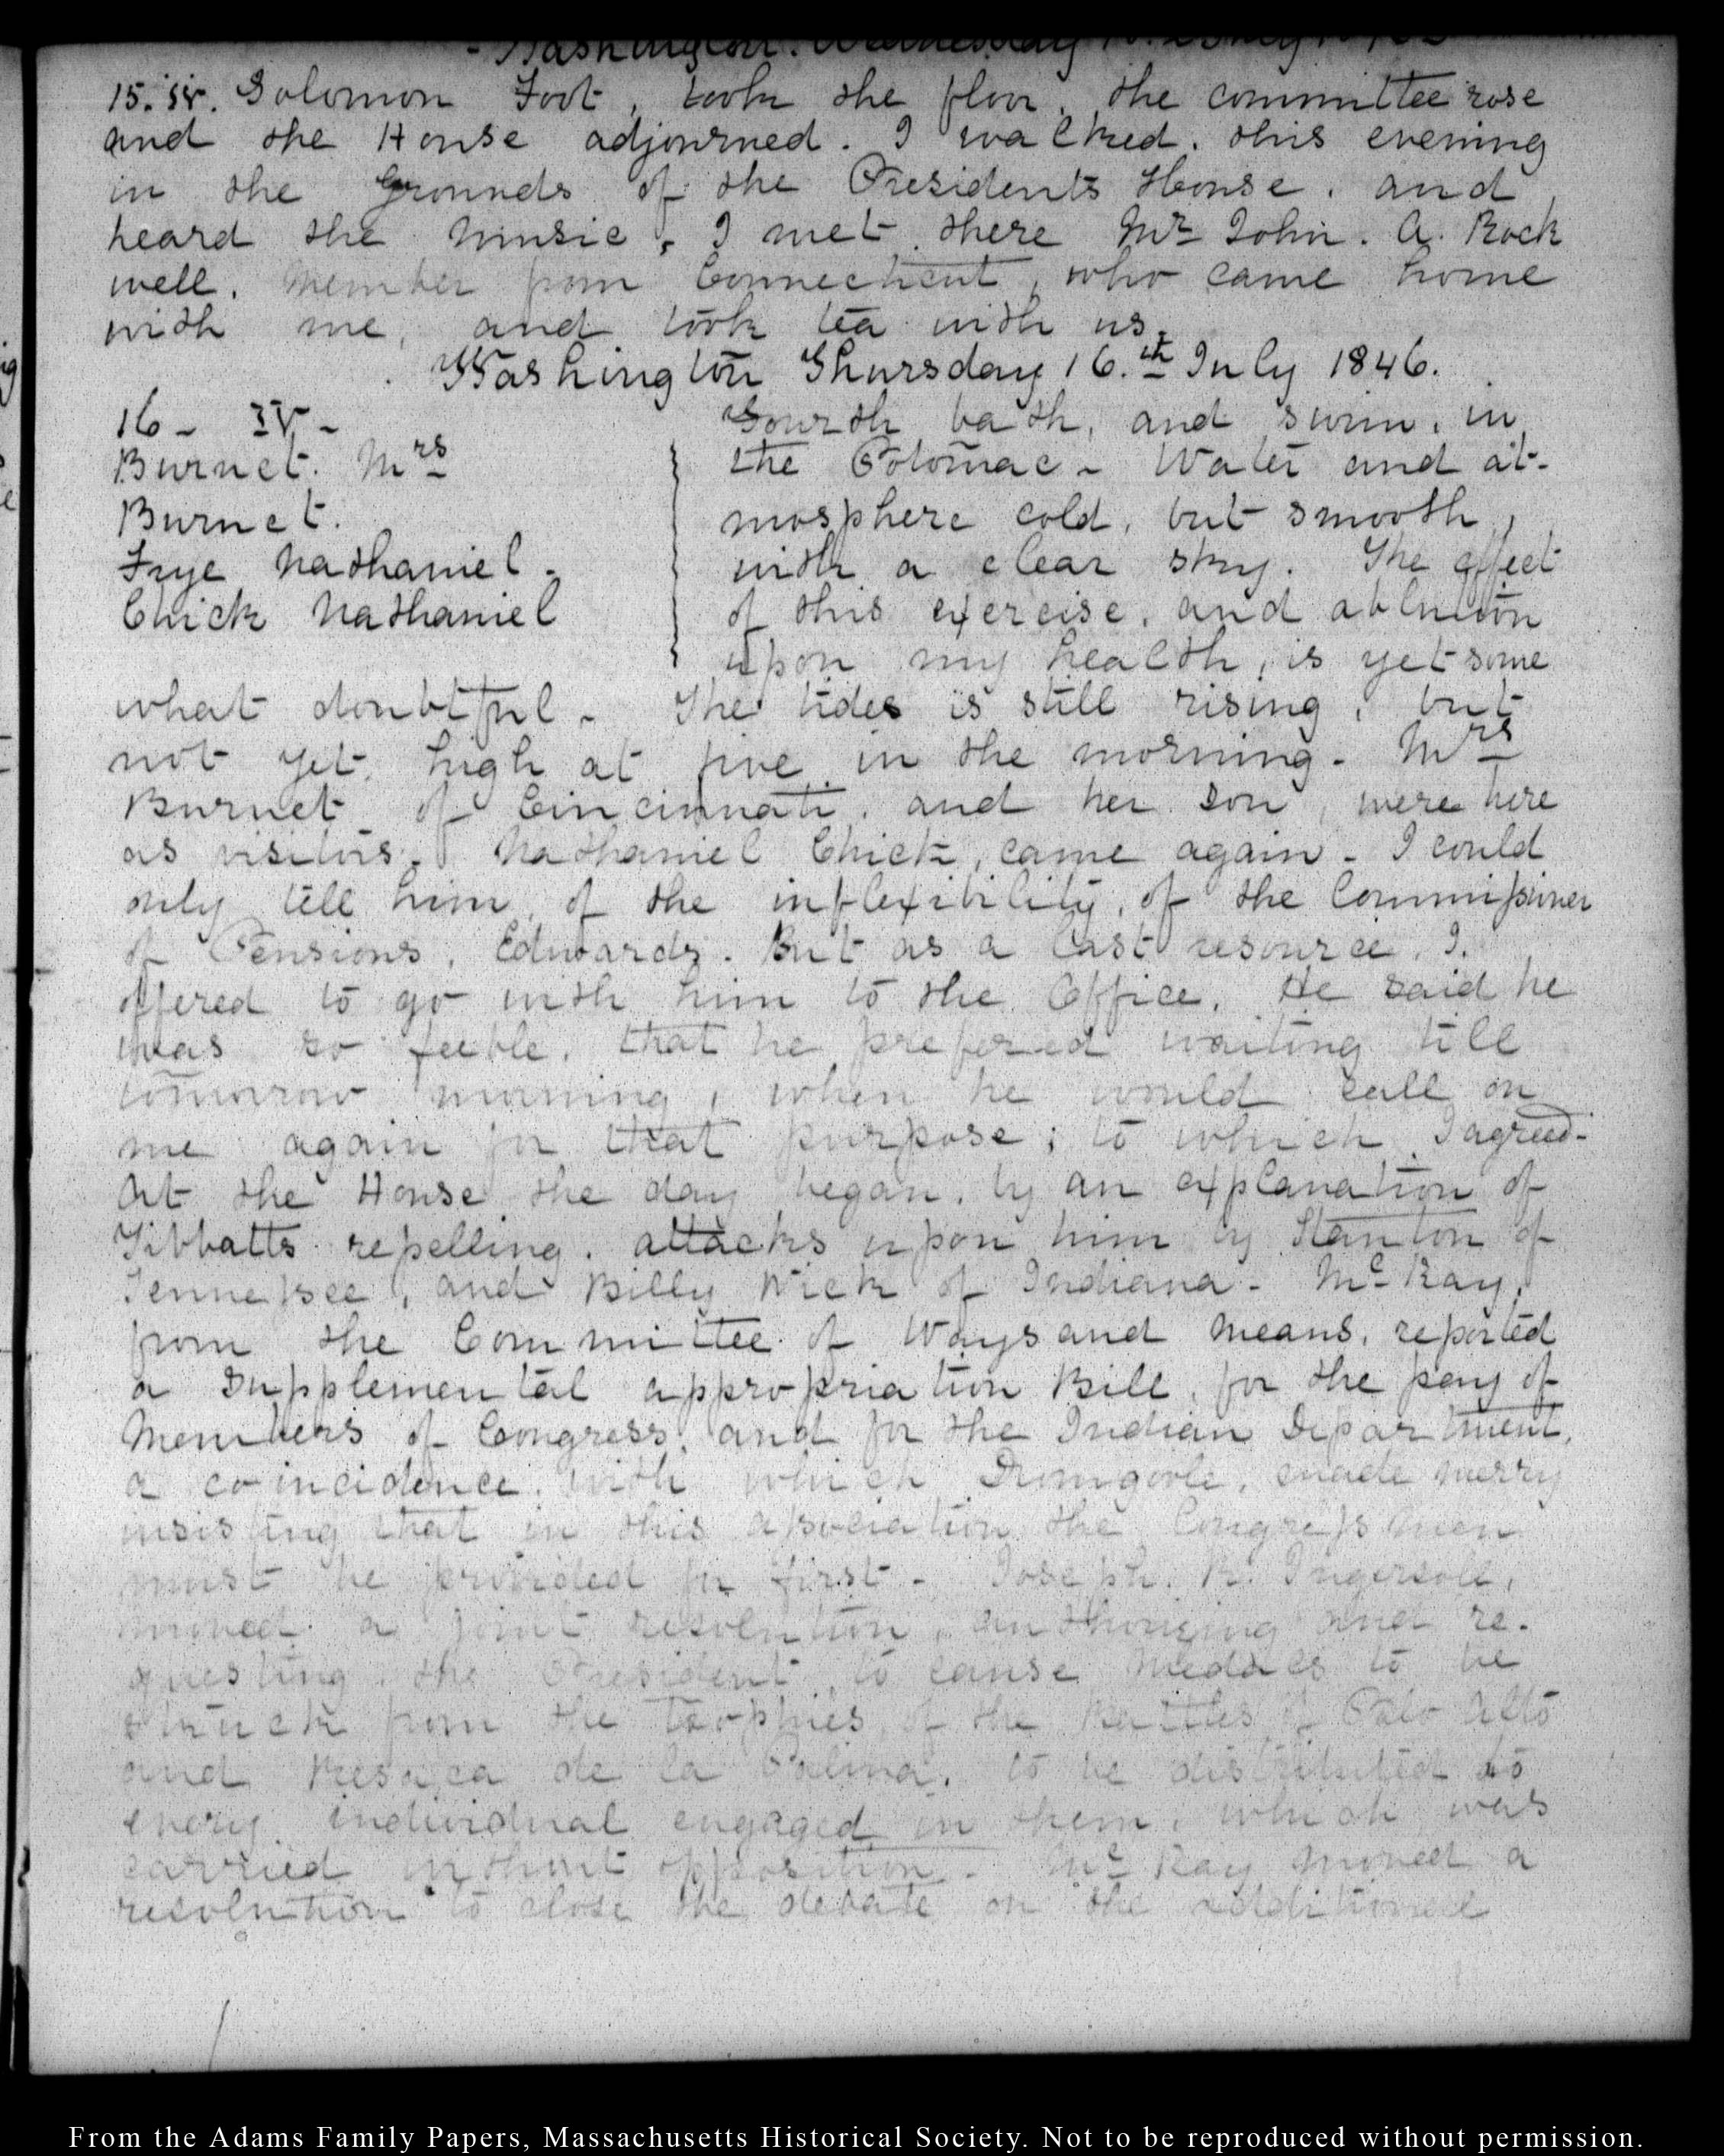 Washington. Wednesday 15. July 1846
15. IV. Solomon Foot, took the floor, the committee rose
and the House adjourned. I walked, this evening
in the Grounds of the Presidents House, and
heard the music, I met there Mr John. A. Rock
well. Member from Connecticut, who came home
with me, and took tea with us.
Washington Thursday 16.th July 1846.
16 - IV -
Burnet. Mrs
Burnet.
Frye Nathaniel -
Chick Nathaniel
Fourth bath, and swim, in
the Potomac - Water and at-
mosphere cold, but smooth,
with a clear sky. The effect
of this exercise, and ablution
upon my health, is yet some
what doubtful - The tides is still rising, but
not yet, high at five in the morning - Mrs
Burnet of Cincinnati, and her son, were here
as visitors. Nathaniel Chick, came again - I could
only tell him, of the inflexibility, of the Commissioner
of Pensions, Edwards. But as a last resource, I.
offered to go with him to the Office. He said he
was so feeble, that he prefered waiting till
tomorrow morning, when he would call on
me again for that purpose; to which I agreed-
At the House the day began, by an explanation of
Tibbatts repelling, attacks upon him by Stanton of
Tennessee, and Billy Wick of Indiana - Mc Kay,
from the Committee of Ways and Means, reported
a Supplemental appropriation Bill, for the pay of
Members of Congress, and for the Indian Department,
a coincidence with which Dromgoole, made merry
insisting that in this association the Congress men
must be provided for first - Joseph. R. Ingersoll,
moved a joint resolution, authorizing and re-
questing, the President, to cause Medals to be
struck from the trophies of the Battles of Palo Alto
and Resaca de la Palma, to be distributed to
every individual engaged in them, which was
carried without opposition - Mc Kay moved a
resolution to close the debate on the additional
From the Adams Family Papers, Massachusetts Historical Society. Not to be reproduced without permission.